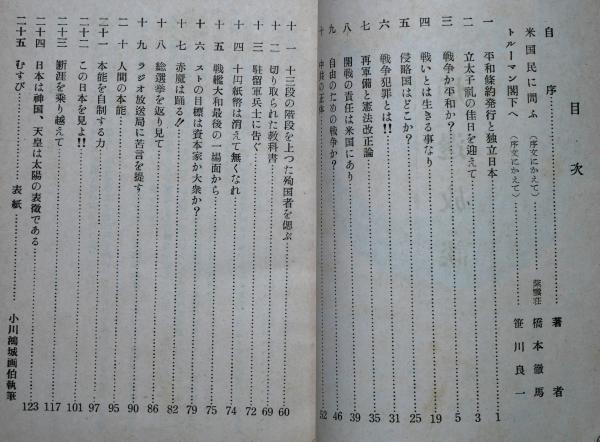 目次
自序……著者
米国民に問ふ(序文にかえて)……紫雲荘 橋本徹馬
トルーマン閣下へ(序文にかえて)……笹川良一
一 平和條約発行と独立日本……1
二 立太子礼の佳日を迎えて……3
三 戦争か平和か?……5
四 戦いとは生きる事なり……19
五 侵略国はどこか?……25
六 戦争犯罪とは!!……31
七 再軍備と憲法改正論……35
八 開戦の責任は米国にあり……39
九 自由のための戦争か?……46
十 中共の正体……52
十一 十三段の階段を上つた殉国者を偲ぶ……60
十二 切り取られた教科書……69
十三 駐留軍兵士に告ぐ……72
十四 十円紙幣は消えて無くなれ……74
十五 戦艦大和最後の一場面から……75
十六 ストの目標は資本家か大衆か?……79
十七 赤魔は踊る!!……82
十八 総選挙を返り見て……86
十九 ラジオ放送局に苦言を提す……90
二十 人間の本能……95
二十一 本能を自制する力……97
二十二 この日本を見よ!!……101
二十三 断涯を乗り越えて……117
二十四 日本は神国、天皇は太陽の表徴である……123
二十五 むすび……
表紙……小川鴻城画伯執筆